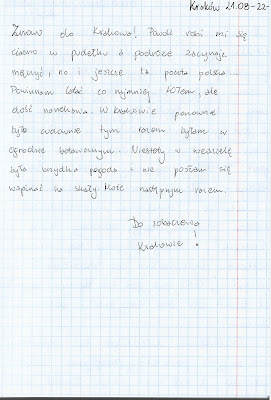 Kraków 21.08-22-
Znowu do Krakowa! Powoli robi mi się
ciasno w pudełku a podróże zaczynają
męczyć, no i jeszcze ta poczta polska...
Powinnam latać co najmniej LOTem, ale
dość narzekania. W Krakowie ponownie
było cudownie tym razem byłam w
ogrodzie botanicznym. Niestety w niedzielę
była brzydka pogoda i nie poszłam się
wspinać na skały. Może następnym razem.
Do zobaczenia
Krakowie!